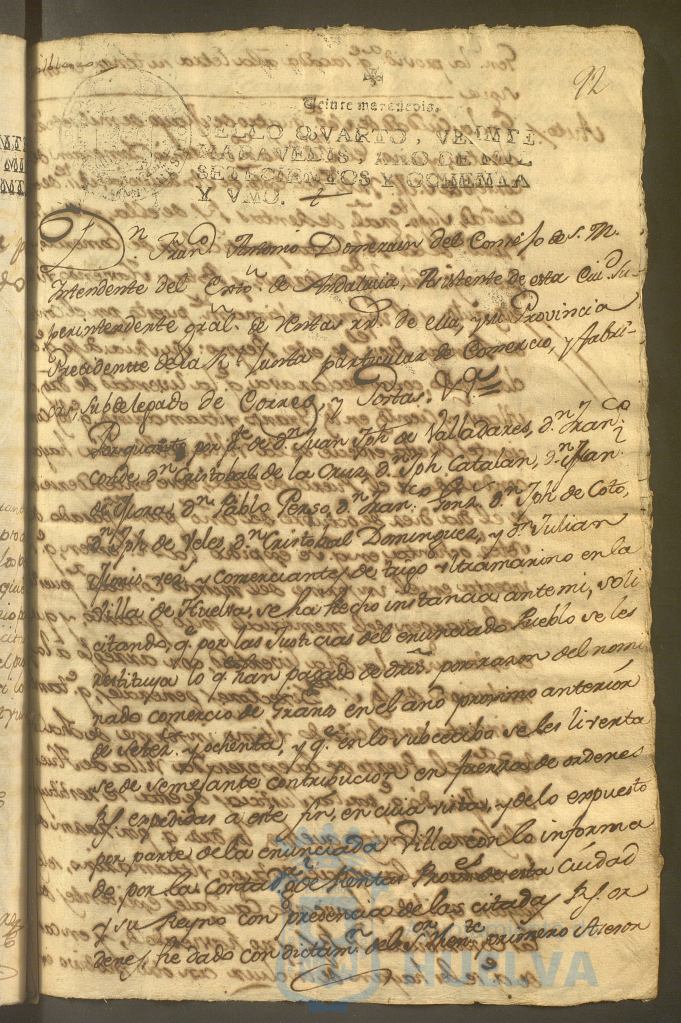 92
Veinte maravedis.
SELLO QVARTO, VEINTE
MARAVEDIS, AÑO DE MIL
SETECIENTOS Y OCHENTA
Y VNO.
Dn. Franco. Antonio Domezain del Consejo de S. M.
Intendente del Exto. de Andalucia, Asistente de esta Ciud. Su-
perintendente gral. de Rentas Rs. de ella, y su Provincia
Presidente de la Rl. Junta particular de Comercio, y fabri-
cas, Subdelegado de Correos, y Postas, &a.
Por quanto por pte. de dn. Juan Jph. de Valladares, dn. Franco.
Conde, dn. Cristobal de la Cruz, dn. Jph. Catalan, dn. Fran.
de Flores, dn. Pablo Penso, dn. Franco. Gonz. dn. Jph. de Coto,
dn. Jph. de Veles, dn. Cristobal Dominguez, y dn. Julian
vezs. y comerciantes de trigo ultramarino en la
Villa de Huelva, se ha hecho instancia ante mi, soli
citando qe. por las Justicias del enunciado Pueblo se les
restituya lo qe. han pagado de dros. por razon del nomi
nado comercio de Granos en el año proximo anterior
de setects. y ochenta, y qe. en lo subcecibo se les liverta
se de semejante contribucion en fuerza de ordenes
Rs. expedidas a este fin, en cuia vista, y de lo expuesto
por parte de la enunciada Villa con lo informa
do por la Contadra. de Rentas Proves. de esta Ciudad
y su Reyno con presencia de las citadas Rs. or
denes, he dado con dictamn. del Sor. Thente. primero Asesor
HUELVA